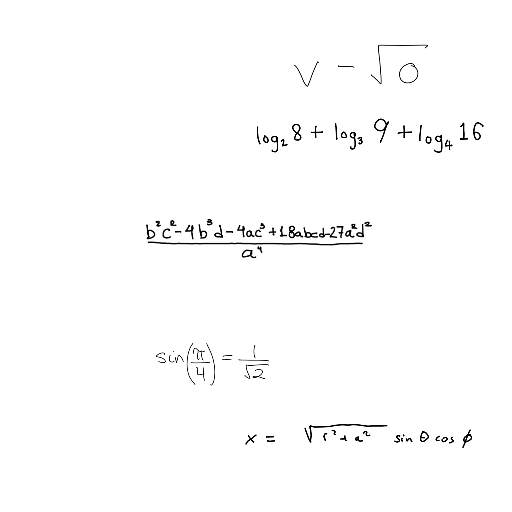 v - √0
log₂ 8 + log₃ 9 + log₄ 16
(b²c² - 4b³d - 4ac³ + 18abcd - 27a²d²) / a⁴
sin(π/4) = 1/√2
x = √(r² + a²) sin θ cos ϕ